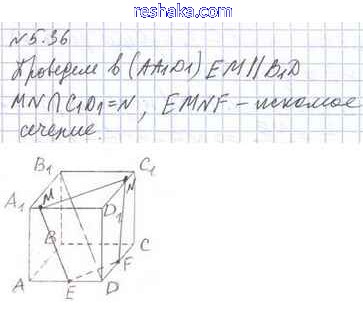 reshaka.com
№5.36
Проведем в (AA₁D₁) EM∥B₁D
MN∩C₁D₁=N, EMNF – искомое
сечение.
B₁ C₁
A₁ M D₁ N
B C
F
A E D